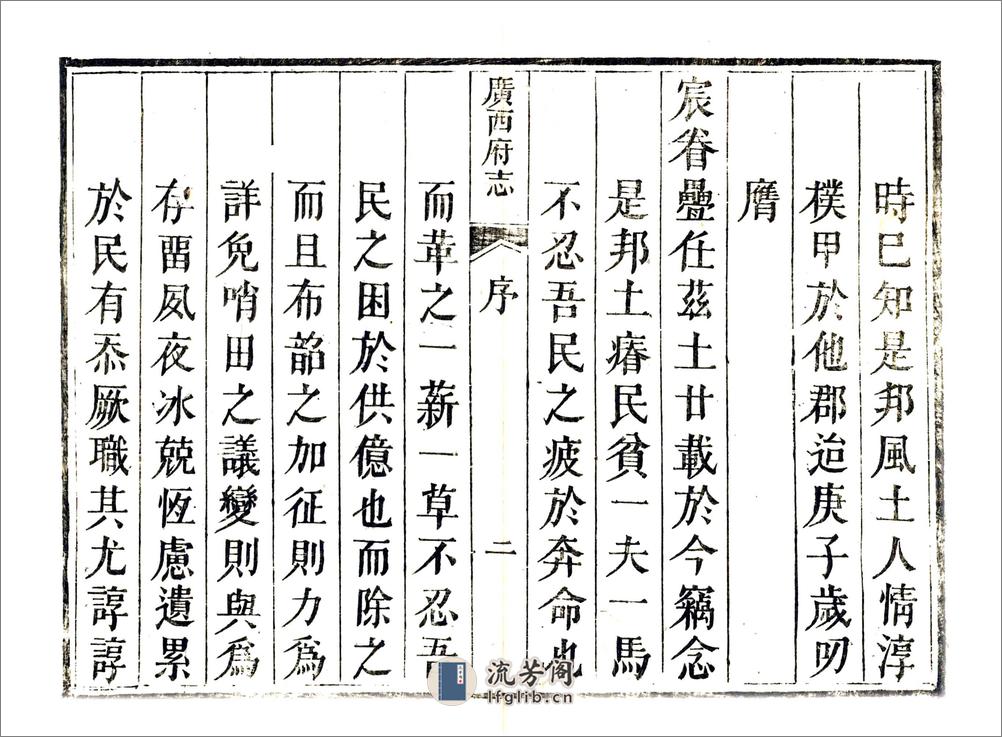 時巳知是邦風土人情淳
樸甲於他郡迨庚子歲叨
膺
宸眷疊任茲土廿載於今竊念
是邦土瘠民貧一夫一馬
不忍吾民之疲於奔命也
廣西府志 序 二
而革之一薪一草不忍吾
民之困於供億也而除之
而且布韶之加征則力爲
詳免哨田之議變則與爲
存畱夙夜冰兢恆慮遺累
於民有忝厥職其尤諄諄
流芳阁
lfglib.cn